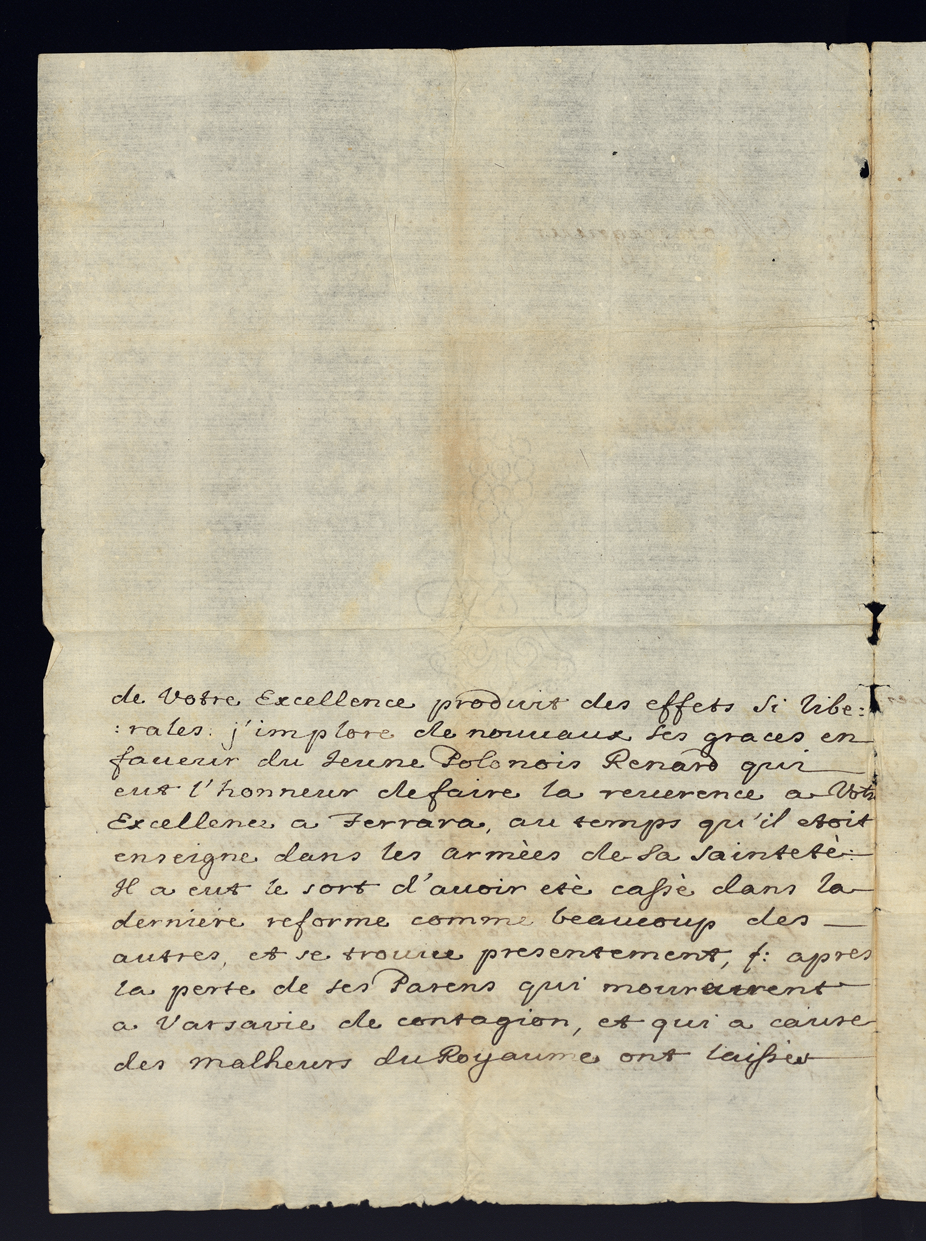 de Votre Excellence produit des effets si libe:
:rales: j'implore de nouuaux ses graces en
faueur du Jeune Polonois Renard qui
eut l'honneur de faire la reuerence a Votr
Excellence a Ferrara, au temps qu'il etoit
enseigne dans les armèes de Sa Saintetè:
Il a eut le sort d'auoir etè cassè dans la
derniere reforme comme beaucoup des
autres, et se trouue presentement, f: apres
la perte de ses Parens qui moururent
a Varsavie de contagion, et qui a cause
des malheurs du Royaume ont laissèe